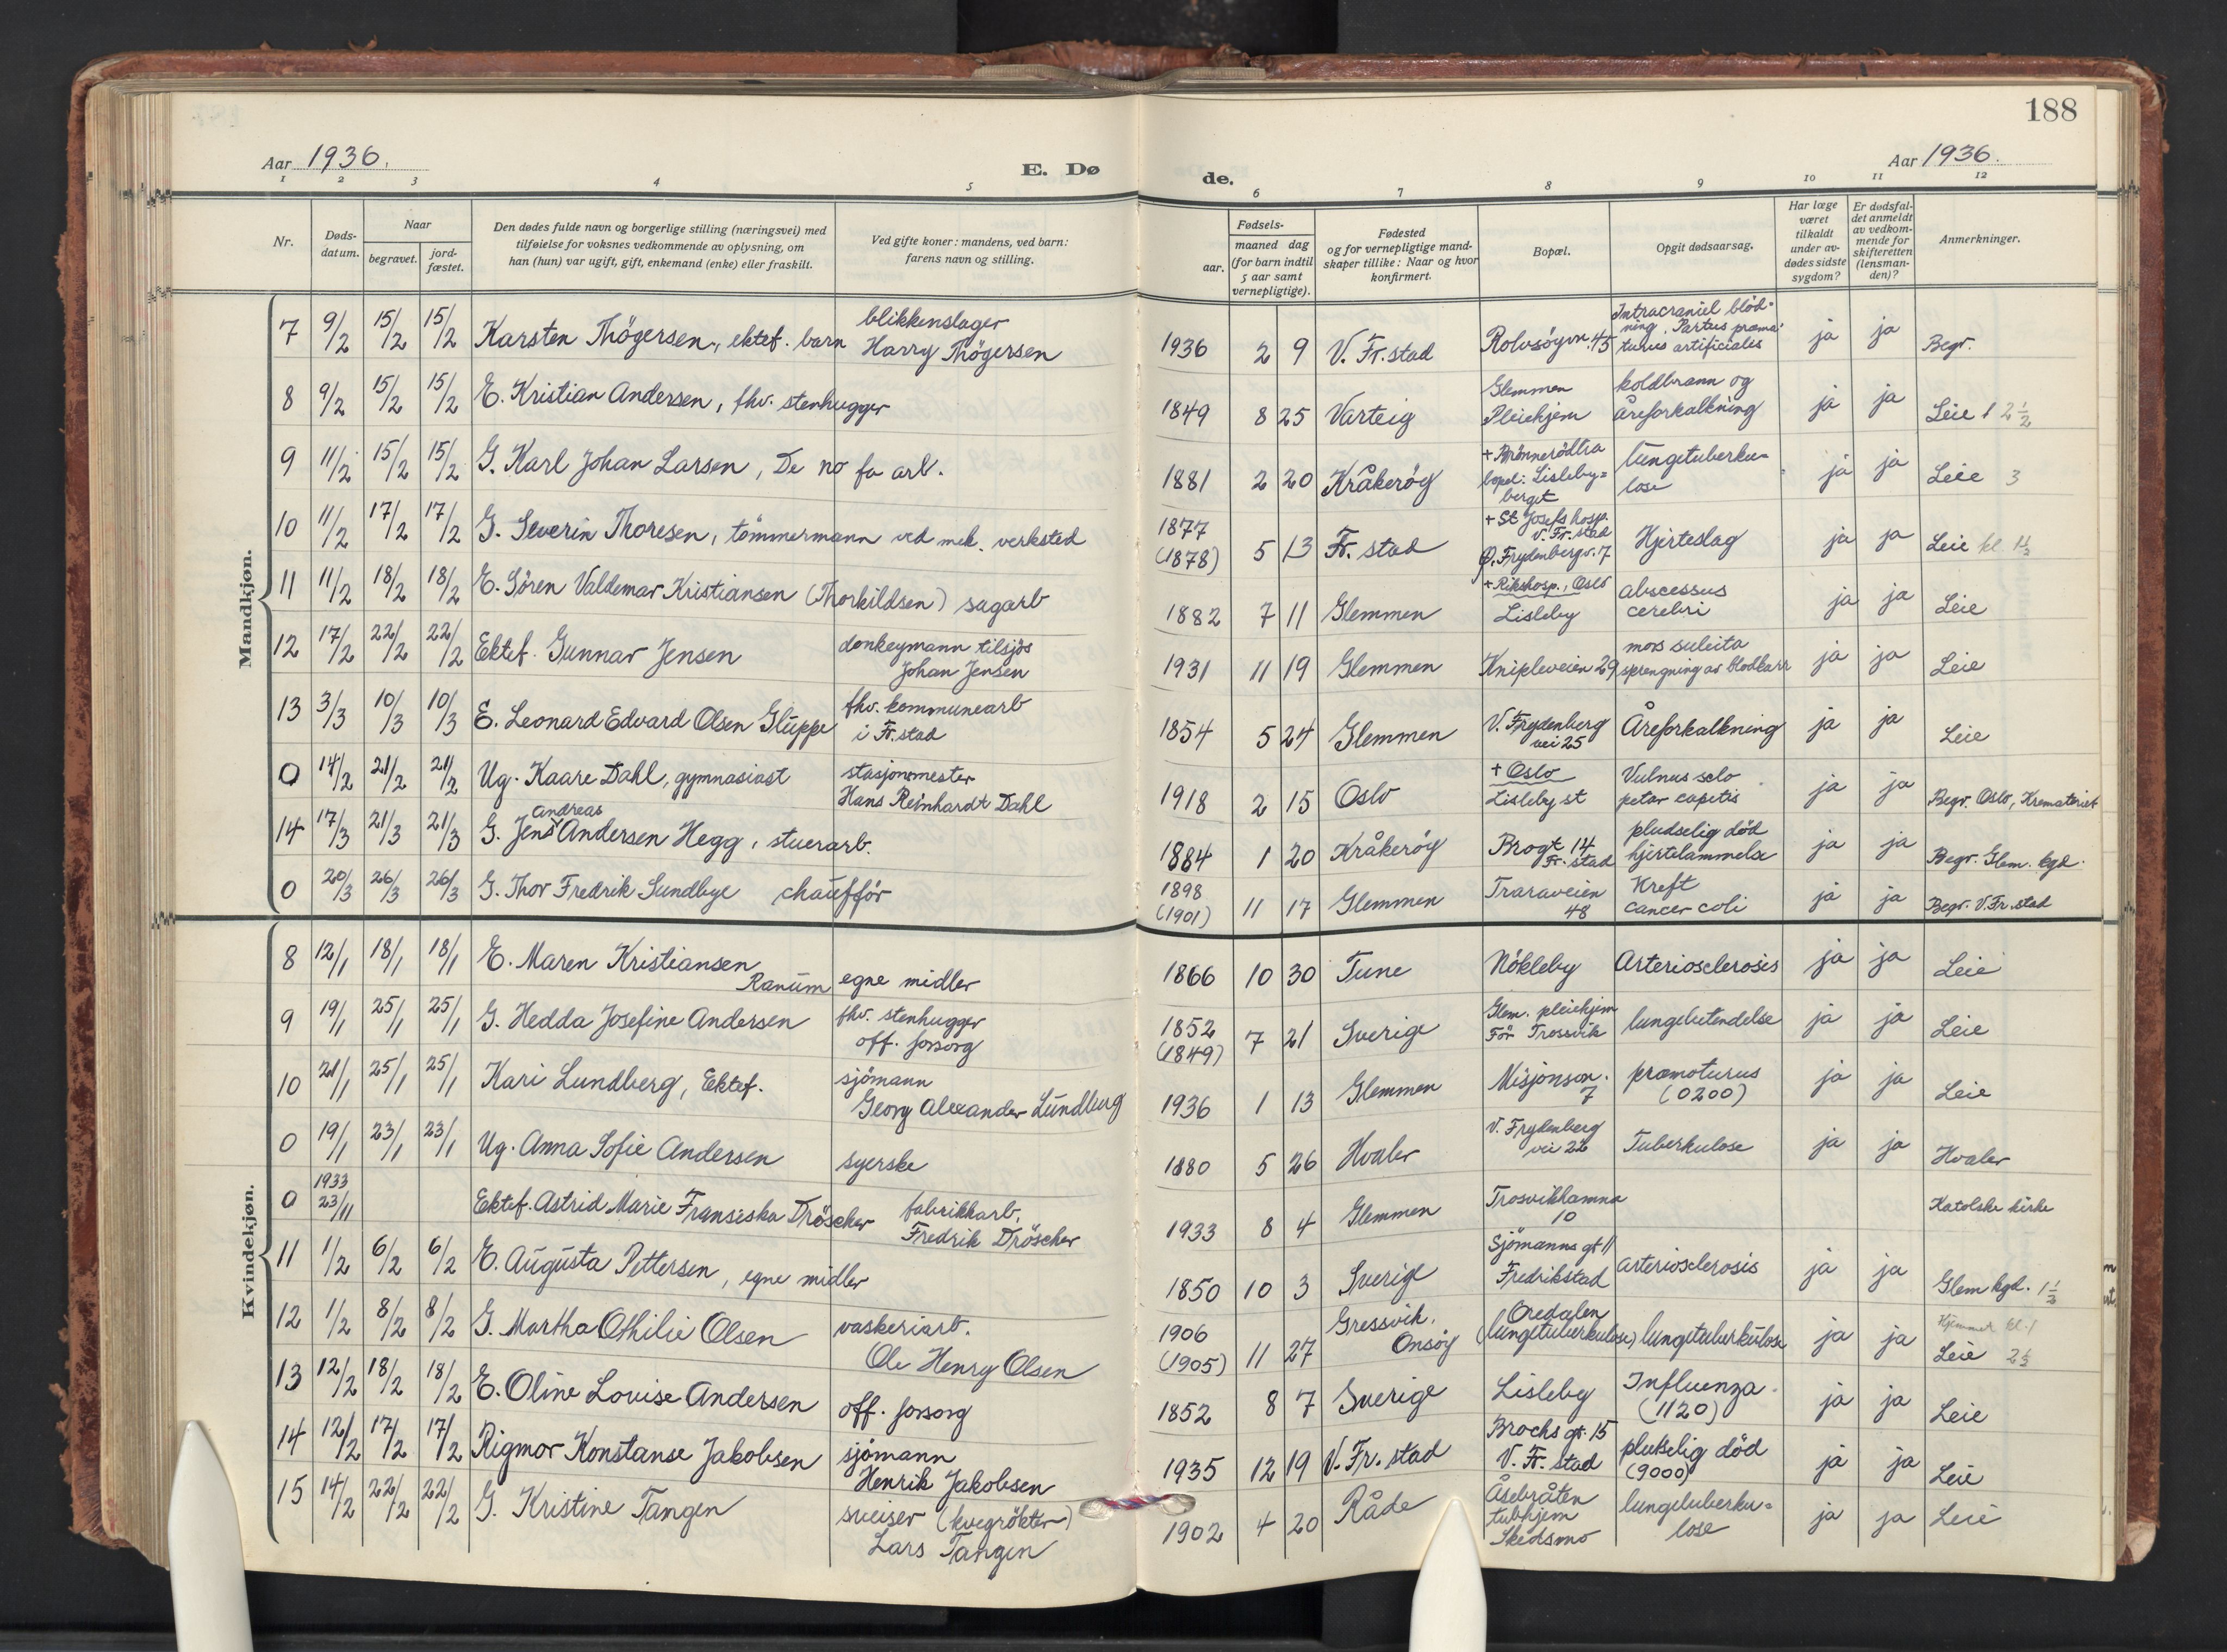 188
Aar 1936.
E. Dø
de.
Aar 1936.
1 2 3 4 5 6 7 8 9 10 11 12
Nr.
Døds-
datum.
Naar
begravet.
jord-
fæstet.
Den dødes fulde navn og borgerlige stilling (næringsvei) med
tilføielse for voksnes vedkommende av oplysning, om
han (hun) var ugift, gift, enkemand (enke) eller fraskilt.
Ved gifte koner: mandens, ved barn:
farens navn og stilling.
Fødsels-
aar.
maaned dag
(for barn indtil
5 aar samt
vernepligtige).
Fødested
og for vernepligtige mand-
skaper tillike: Naar og hvor
konfirmert.
Bopæl.
Opgit dødsaarsag.
Har læge
været
tilkaldt
under av-
dødes sidste
sygdom?
Er dødsfal-
det anmeldt
av vedkom-
mende for
skifteretten
(lensman-
den)?
Anmerkninger.
Mandkjøn.
7 9/2 15/2 15/2 Karsten Thögersen, ektef. barn
blikkenslager
Harry Thögersen
1936 2 9 V. Fr.stad Rolvsöyvn. 45
Intracraniel blöd-
ning. Partus præma-
turus artificialis
ja ja Begr.
8 9/2 15/2 15/2 E. Kristian Andersen, fhv. stenhugger
1849 8 25 Varteig
Glemmen
Pleiehjem
koldbrann og
åreforkalkning
ja ja Leie 1 2 1/2
9 11/2 15/2 15/2 G. Karl Johan Larsen, De no fa arb.
1881 2 20 Kråkeröy
+ Brönnerödlia
boped: Lisleby-
berget
lungetuberku-
lose
ja ja Leie 3
10 11/2 17/2 17/2 G. Severin Thoresen, tömmermann ved mek. verksted
1877
(1878) 5 13 Fr. stad
+ St Josefs hosp.
V. Fr. stad
Ø. Frydenbergv. 17
Hjerteslag
ja ja Leie kl. 1 1/2
11 11/2 18/2 18/2 E. Sören Valdemar Kristiansen (Thorkildsen) sagarb
1882 7 11 Glemmen
+ Rikshosp., Oslo
Lisleby
abscessus
cerebri
ja ja Leie
12 17/2 22/2 22/2 Ektef. Gunnar Jensen
donkeymann tilsjös
Johan Jensen
1931 11 19 Glemmen Knipleveien 29
mors subita
sprengning av blodkarr
ja ja Leie
13 3/3 10/3 10/3 E. Leonard Edvard Olsen Gluppe
fhv. kommunearb
i Fr.stad
1854 5 24 Glemmen
V. Frydenberg
vei 25
Åreforkalkning
ja ja Leie
0 14/2 21/2 21/2 Ug. Kaare Dahl, gymnasiast
stasjonsmester
Hans Reinhardt Dahl
1918 2 15 Oslo
+ Oslo
Lisleby st
Vulnus sclo
petar capitis
ja ja Begr. Oslo, Krematoriet
14 17/3 21/3 21/3 G. Jens Andreas Andersen Hegg, stuerarb.
1884 1 20 Kråkeröy
Brogt 14
Fr. stad
pludselig död
hjertelammelse
ja ja Begr. Glem. kgd.
0 20/3 26/3 26/3 G. Thor Fredrik Sundbye chaufför
1898
(1901) 11 17 Glemmen
Traraveien
48
Kreft
cancer coli
ja ja Begr. V. Fr. stad
Kvindekjøn.
8 12/1 18/1 18/1 E. Maren Kristiansen
Ranum egne midler
1866 10 30 Tune Nökleby Arteriosclerosis ja ja Leie
9 19/1 25/1 25/1 G. Hedda Josefine Andersen
fhv. stenhugger
off. forsorg
1852
(1849) 7 21 Sverige
Glem. pleiehjem
För Trossvik
lungebetendelse
ja ja Leie
10 21/1 25/1 25/1 Kari Lundberg, Ektef.
sjömann
Georg Alexander Lundberg
1936 1 13 Glemmen
Misjonson.
7
præmoturus
(0200)
ja ja Leie
0 19/1 23/1 23/1 Ug. Anna Sofie Andersen syerske
1880 5 26 Hvaler
V. Frydenberg
vei 22
Tuberkulose
ja ja Hvaler
0 1933
23/11 Ektef. Astrid Marie Fransiska Dröscher
fabrikkarb.
Fredrik Dröscher
1933 8 4 Glemmen
Trosvikhamna
10
Katolske kirke
11 1/2 6/2 6/2 E. Augusta Pettersen, egne midler
1850 10 3 Sverige
Sjömanns gt 11
Fredrikstad
arteriosclerosis
ja ja Glem kgd. 1 1/2
12 1/2 8/2 8/2 G. Martha Othilie Olsen
vaskeriarb.
Ole Henry Olsen
1906
(1905) 11 27
Gressvik.
Onsöy
Oredalen
(lungetuberkulose) lungetuberkulose
ja ja
Hjemmer kl. 1
Leie 2 1/2
13 12/2 18/2 18/2 E. Oline Lovise Andersen off. forsorg
1852 8 7 Sverige Lisleby
Influenza.
(1120)
ja ja Leie
14 12/2 17/2 17/2 Rigmor Konstanse Jakobsen
sjömann
Henrik Jakobsen
1935 12 19 V. Fr. stad
Brochs gt. 15
V. Fr. stad
plutselig död
(9000)
ja ja Leie
15 14/2 22/2 22/2 G. Kristine Tangen
sveiser (kvegrökter)
Lars Tangen
1902 4 20 Råde
Åsebråten
tubhjem
Skedsmo
lungetuberku-
lose
ja ja Leie